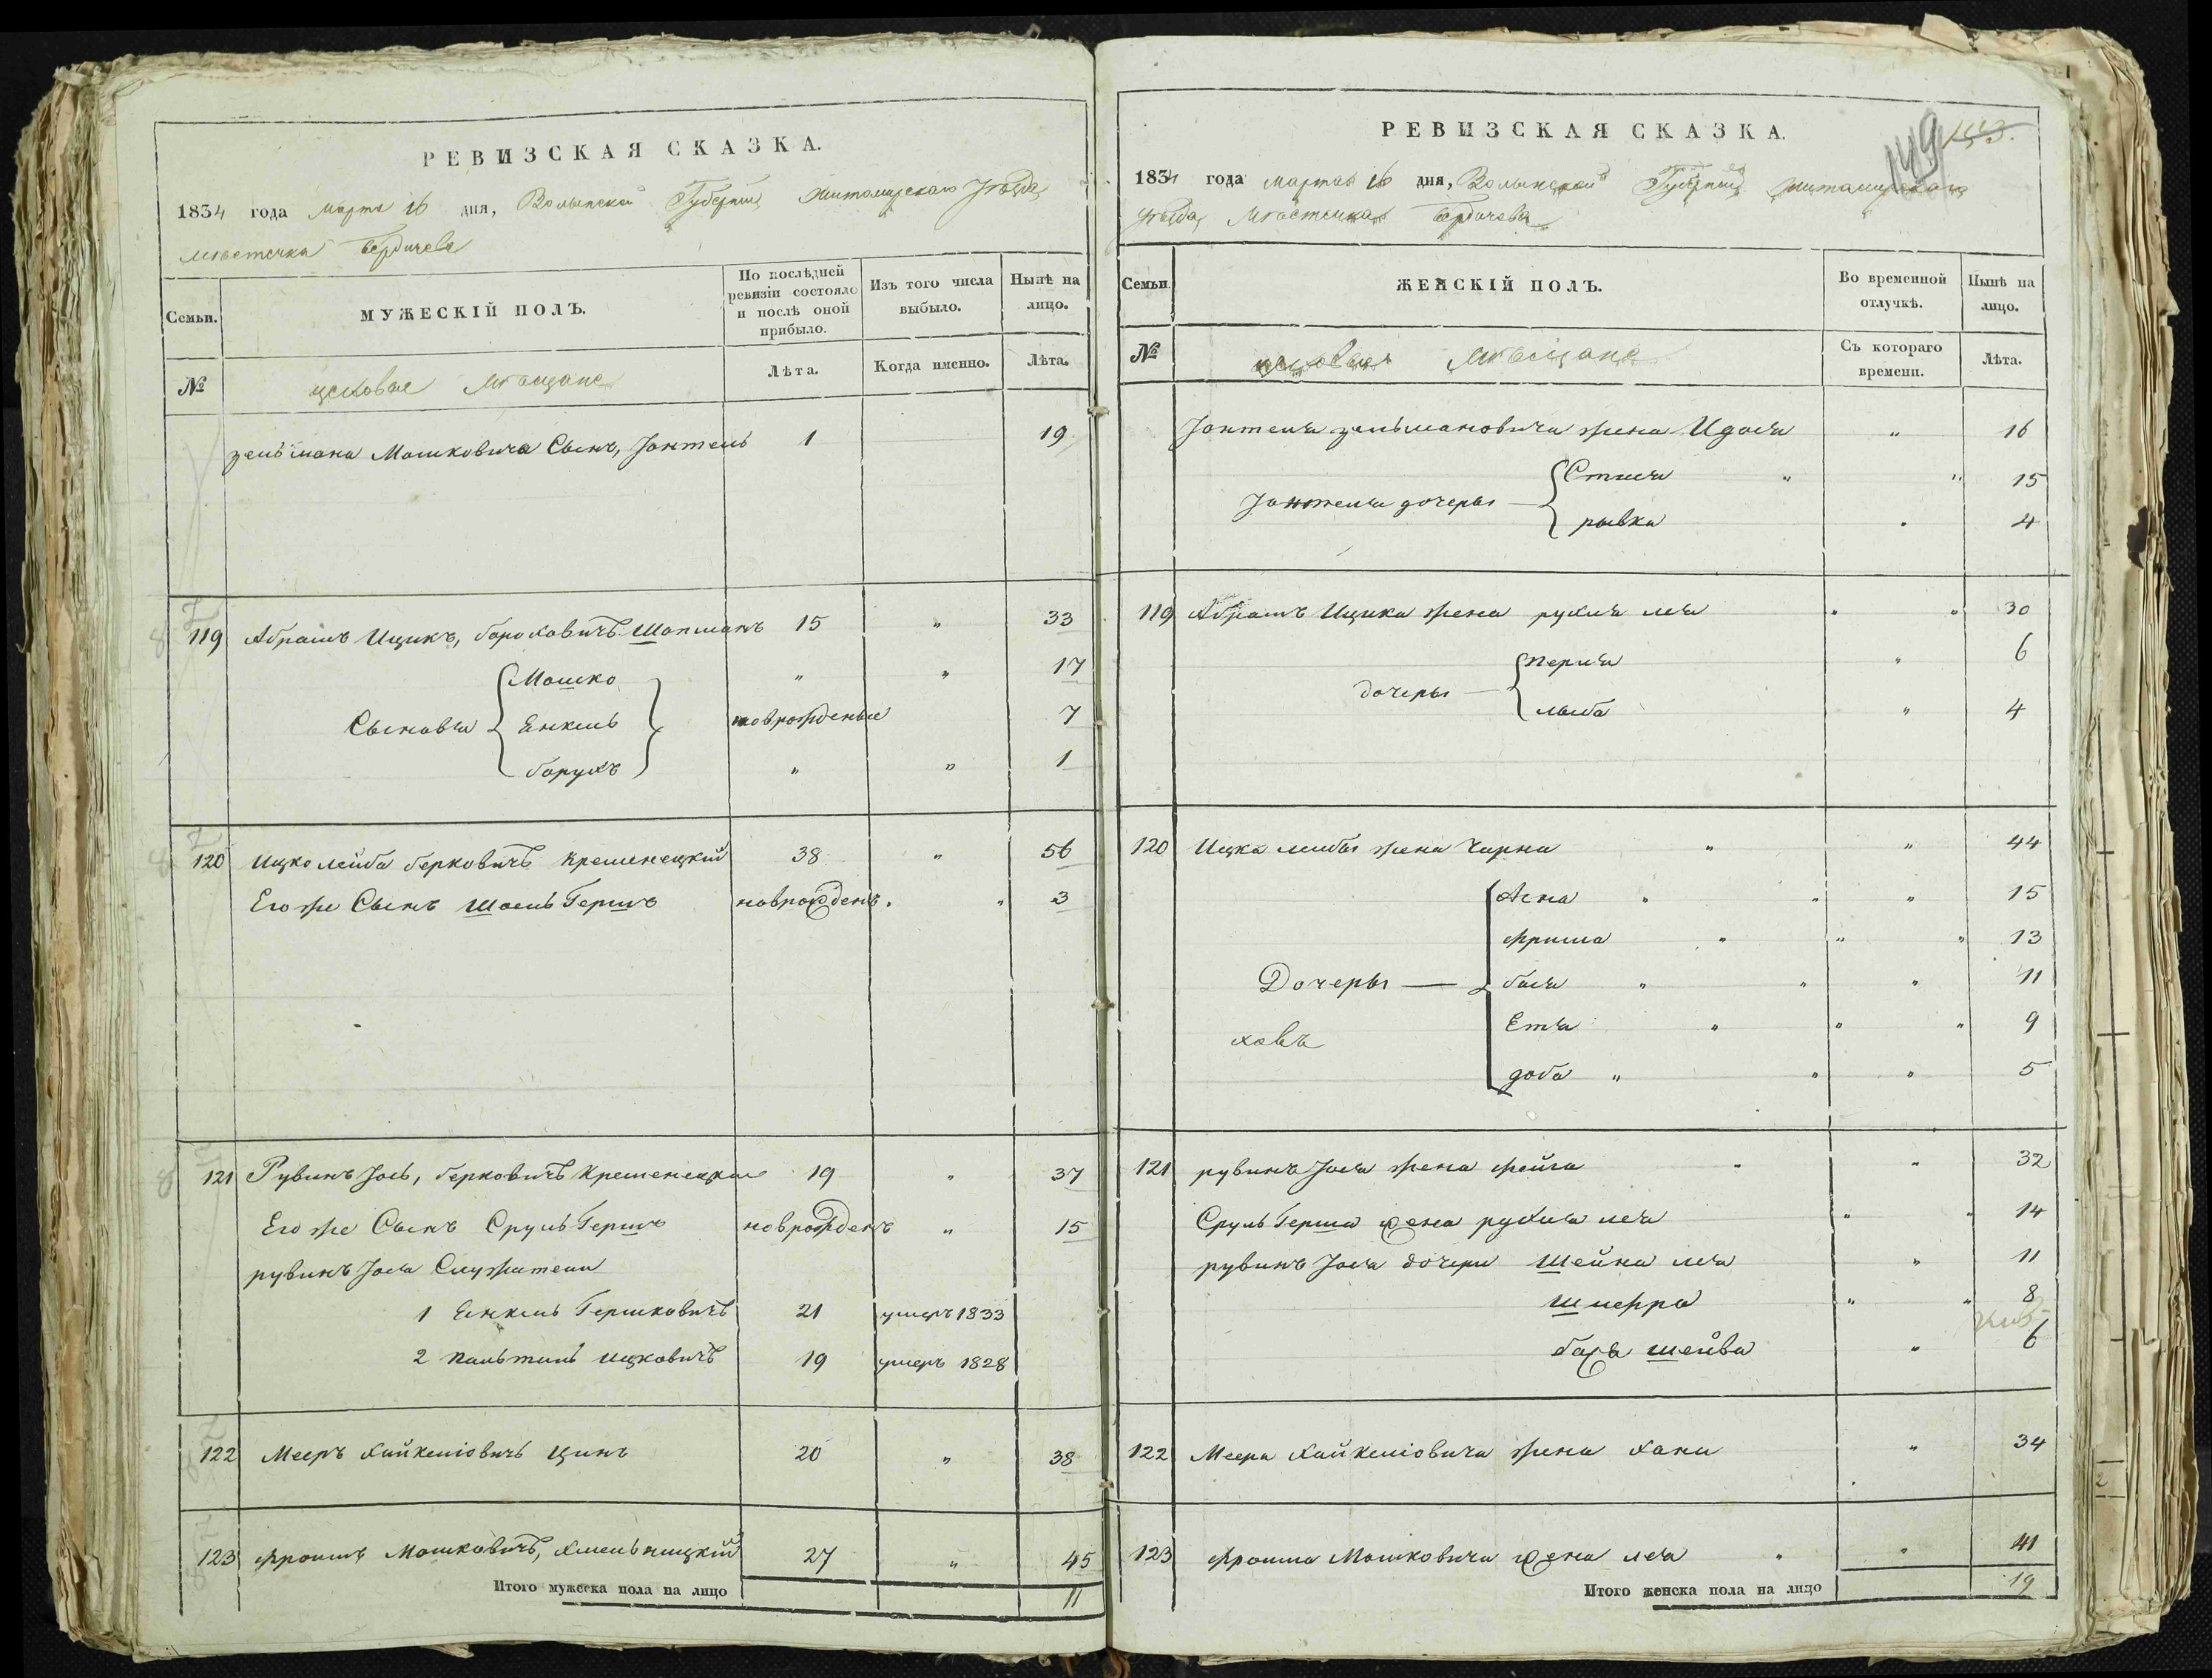 РЕВИЗСКАЯ СКАЗКА.
1834 года Марта 16 дня, Волынской Губерніи, Житомирскаго Уѣзда,
мѣстечка Бердичева
Семьи.
МУЖЕСКІЙ ПОЛЪ.
По послѣдней ревизіи состояло и послѣ оной прибыло.
Изъ того числа выбыло.
Нынѣ на лицо.
№
цеховые Мѣщане
Лѣта.
Когда именно.
Лѣта.
зельмана Мошковича Сынъ, Іонтель 1 19
119 Абрамъ Ицикъ, бороховичъ Шапманъ 15 " 33
Мошко " " 17
Сыновья Енкель новрожденые 7
борухъ " " 1
120 Ицко лейба берковичъ Кременецкій 38 " 56
Его же Сынъ Шоель Гершъ новрожденъ. " 3
121 Рувинъ Іось, берковичъ Кременецкій 19 " 37
Его же Сынъ Сруль Гершъ новрожденъ " 15
рувинъ Іося Служители
1 Енкель Гершковичъ 21 умеръ 1833
2 Пальтиель ицковичъ 19 умеръ 1828
122 Мееръ Хайкеліовичъ Цинъ 20 " 38
123 Фроимъ Мошковичъ, Хмельницкій 27 " 45
Итого мужеска пола на лицо 11
149 153.
РЕВИЗСКАЯ СКАЗКА.
1834 года марта 16 дня, Волынской Губерніи, Житомирскаго
Уѣзда, Мѣстечка Бердичева
Семьи
ЖЕНСКІЙ ПОЛЪ.
Во временной отлучкѣ.
Нынѣ на лицо.
№
цеховыя Мѣщане
Съ котораго времени.
Лѣта.
Іонтеля зельмановича жена Идася " 16
Стися " " 15
Іонтеля дочеры
рывка " 4
119 Абрамъ Ицика жена рухля лея " " 30
перля " 6
дочеры
лыба " 4
120 Ицка лейбы жена Чарна " " 44
Асна " " " 15
Фрима " " " 13
Дочеры — бася " " " 11
Етя " " " 9
ховъ
доба " " " 5
121 рувинъ Іося жена Фейга " " 32
Сруль Герша жена рухля лея " " 14
рувинъ Іося дочери Шейна лея " 11
Шпефра " " 8
бася шейва " 6
122 Меера Хайкеліовича жена Хана " 34
123 Фроима Мошковича жена лея " " 41
Итого женска пола на лицо 19
2